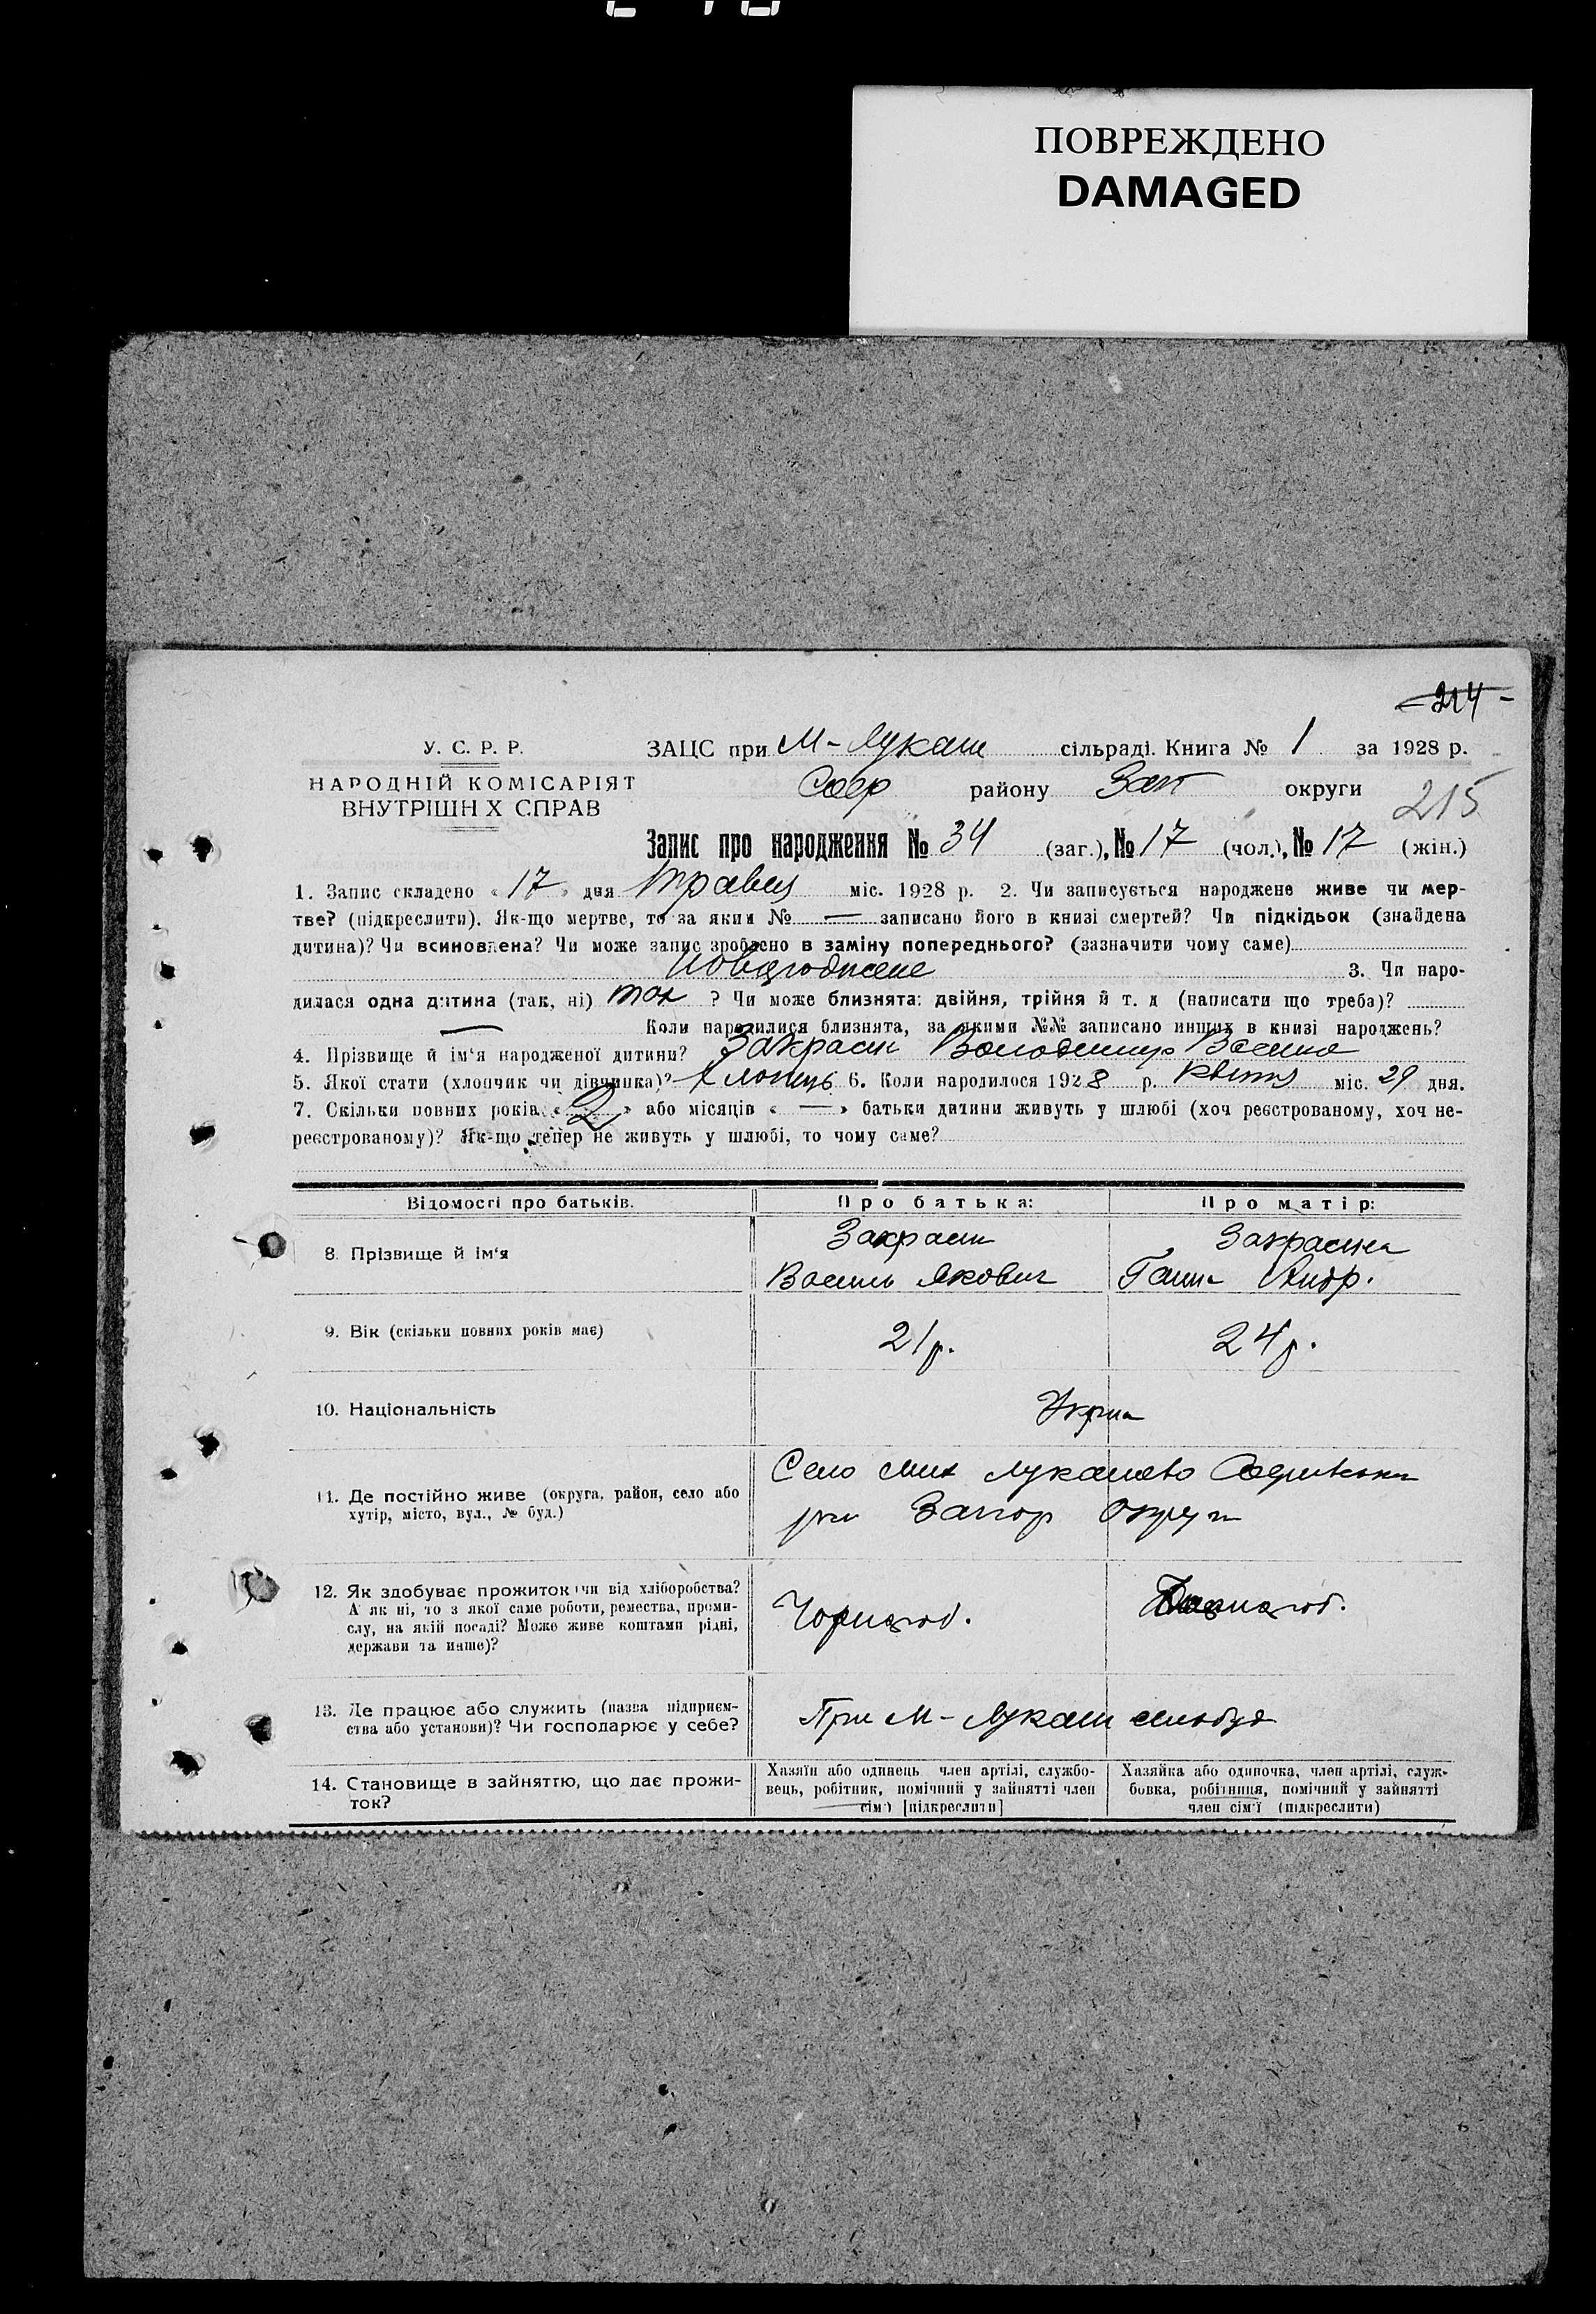 ПОВРЕЖДЕНО
DAMAGED
214 -
У. С. Р. Р.
НАРОДНІЙ КОМІСАРІЯТ
ВНУТРІШН Х СПРАВ
ЗАЦС при М-Лукаш сільраді. Книга № 1 за 1928 р.
району Зап округи
215
Запис про народження № 34 (заг.), № 17 (чол.), № 17 (жін.)
1. Запис складено « 17 » дня Травня міс. 1928 р. 2. Чи записується народжене живе чи мер-
тве? (підкреслити). Як-що мертве, то за яким № — записано його в книзі смертей? Чи підкідьок (знайдена
дитина)? Чи всиновлена? Чи може запис зроблено в заміну попереднього? (зазначити чому саме)
3. Чи наро-
дилася одна дитина (так, ні) так ? Чи може близнята: двійня, трійня й т. д (написати що треба)?
— Коли народилися близнята, за якими №№ записано инших в книзі народжень?
4. Прізвище й ім'я народженої дитини? Закрасин Володимир
5. Якої стати (хлопчик чи дівчинка)? Хлопець 6. Коли народилося 1928 р. Квітн міс. 29 дня.
7. Скільки повних років « 2 » або місяців « — » батьки дитини живуть у шлюбі (хоч реєстрованому, хоч не-
реєстрованому)? Як-що тепер не живуть у шлюбі, то чому саме?
Відомості про батьків. Про батька: Про матір:
8. Прізвище й ім'я
Василь Якович
Андр.
9. Вік (скільки повних років має) 21 р. 24 р.
10. Національність
11. Де постійно живе (округа, район, село або
хутір, місто, вул., № буд.)
Село Мих Лукашево
Запор Округи
12. Як здобуває прожиток чи від хліборобства?
А як ні, то з якої саме роботи, ремества, проми-
слу, на якій посаді? Може живе коштами рідні,
держави та инше)?
Чорнороб.
13. Де працює або служить (назва підприєм-
ства або установи)? Чи господарює у себе?
При М-Лукаш
14. Становище в зайняттю, що дає прожи-
ток?
Хазяїн або одинець член артілі, службо-
вець, робітник, помічний у зайнятті член
сім'ї [підкреслити]
Хазяйка або одиночка, член артілі, служ-
бовка, робітниця, помічний у зайнятті
член сім'ї (підкреслити)